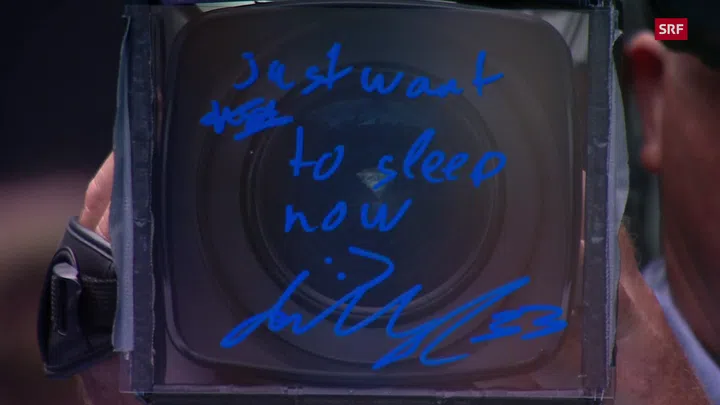 SRF
Just waat
to sleep
now
:)